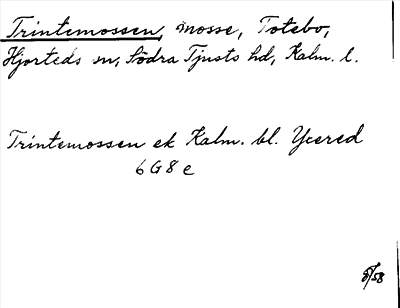 Trintemossen, mosse, Totebo,
Hjorteds sn, Södra Tjusts hd, Kalm. l.
Trintemossen ek Kalm. bl. Yxered
6 G 8 e
/58